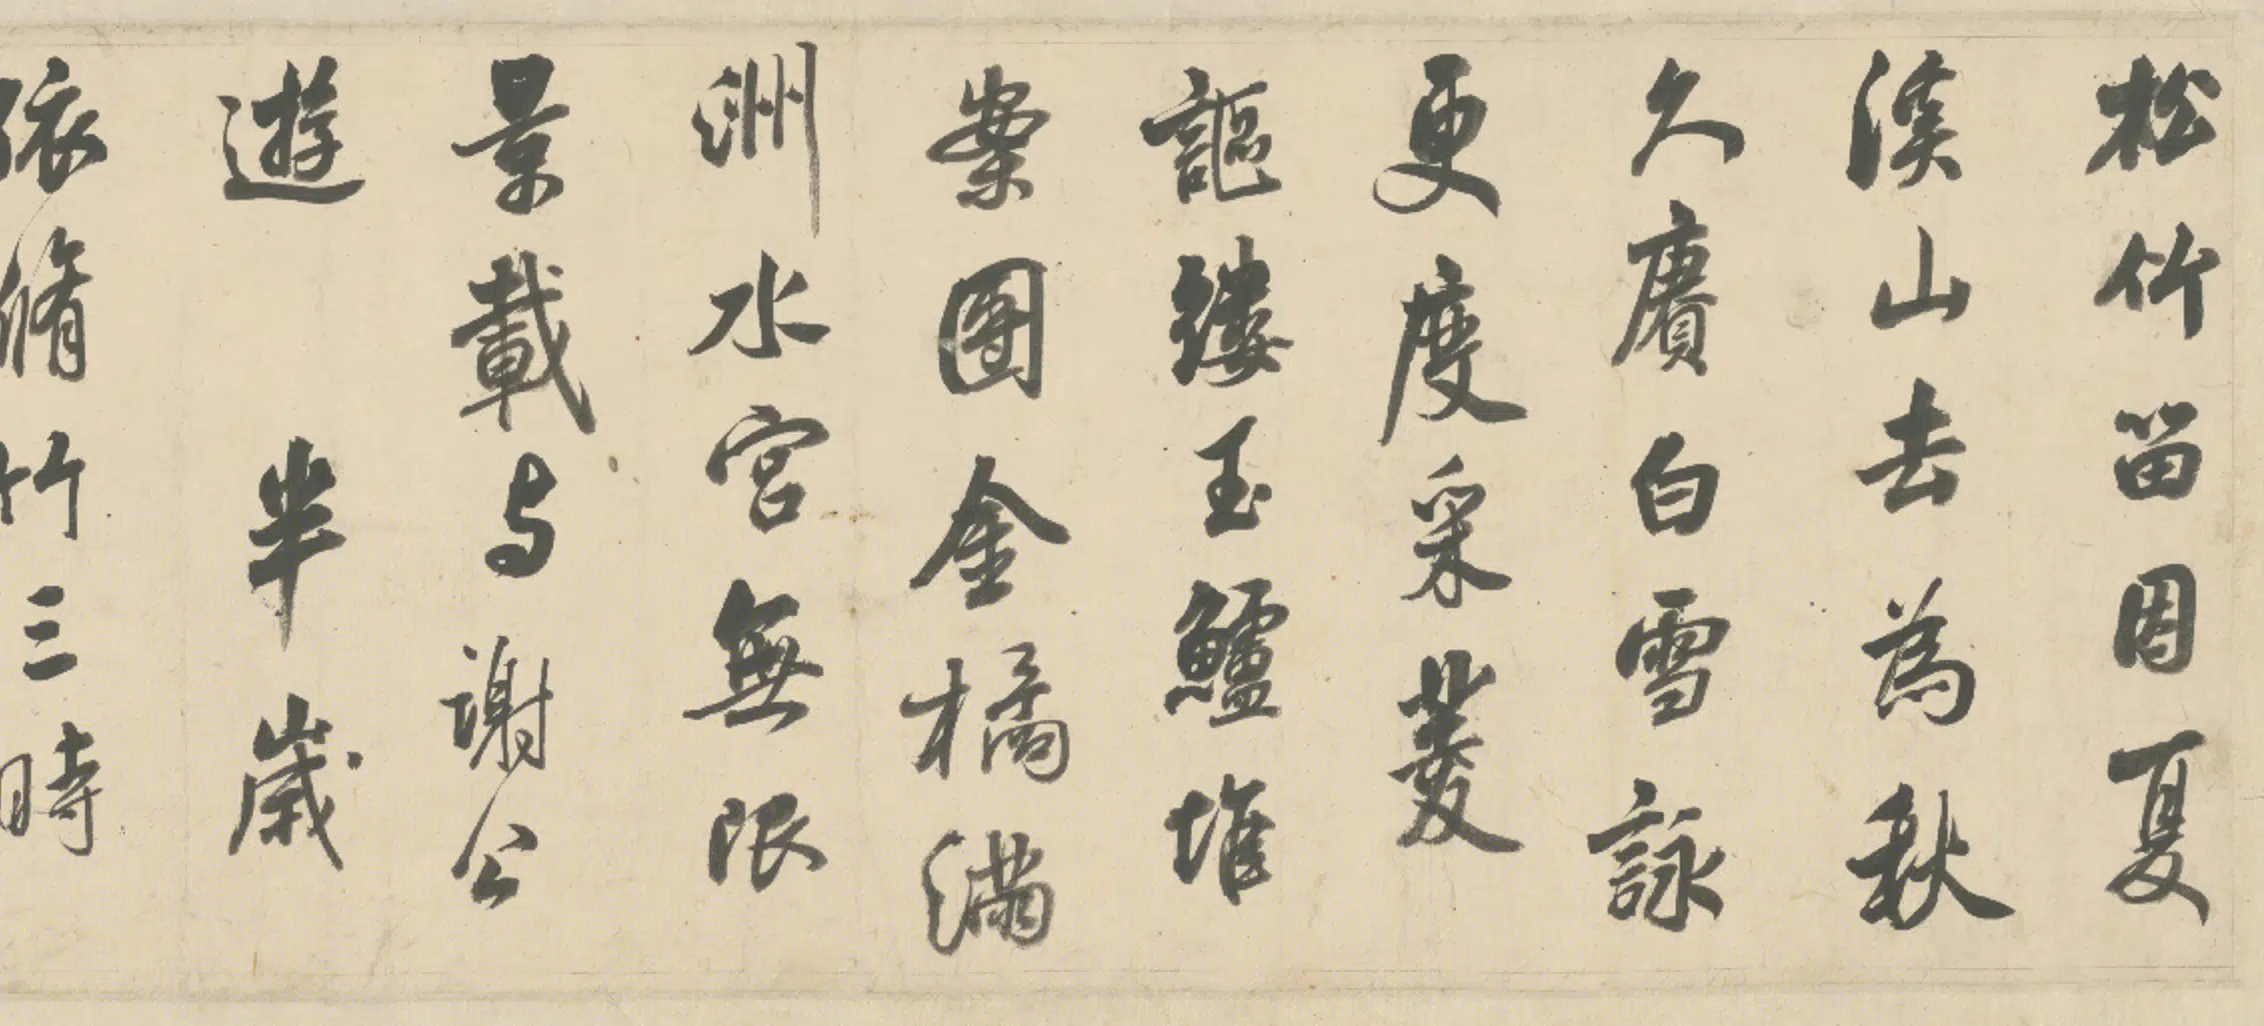 松竹留因夏
溪山去為秋
久賡白雪詠
更度采菱
謳鏤玉鱸堆
案團金橘滿
洲水宮無限
景載与謝公
遊 半歲
依脩竹三時